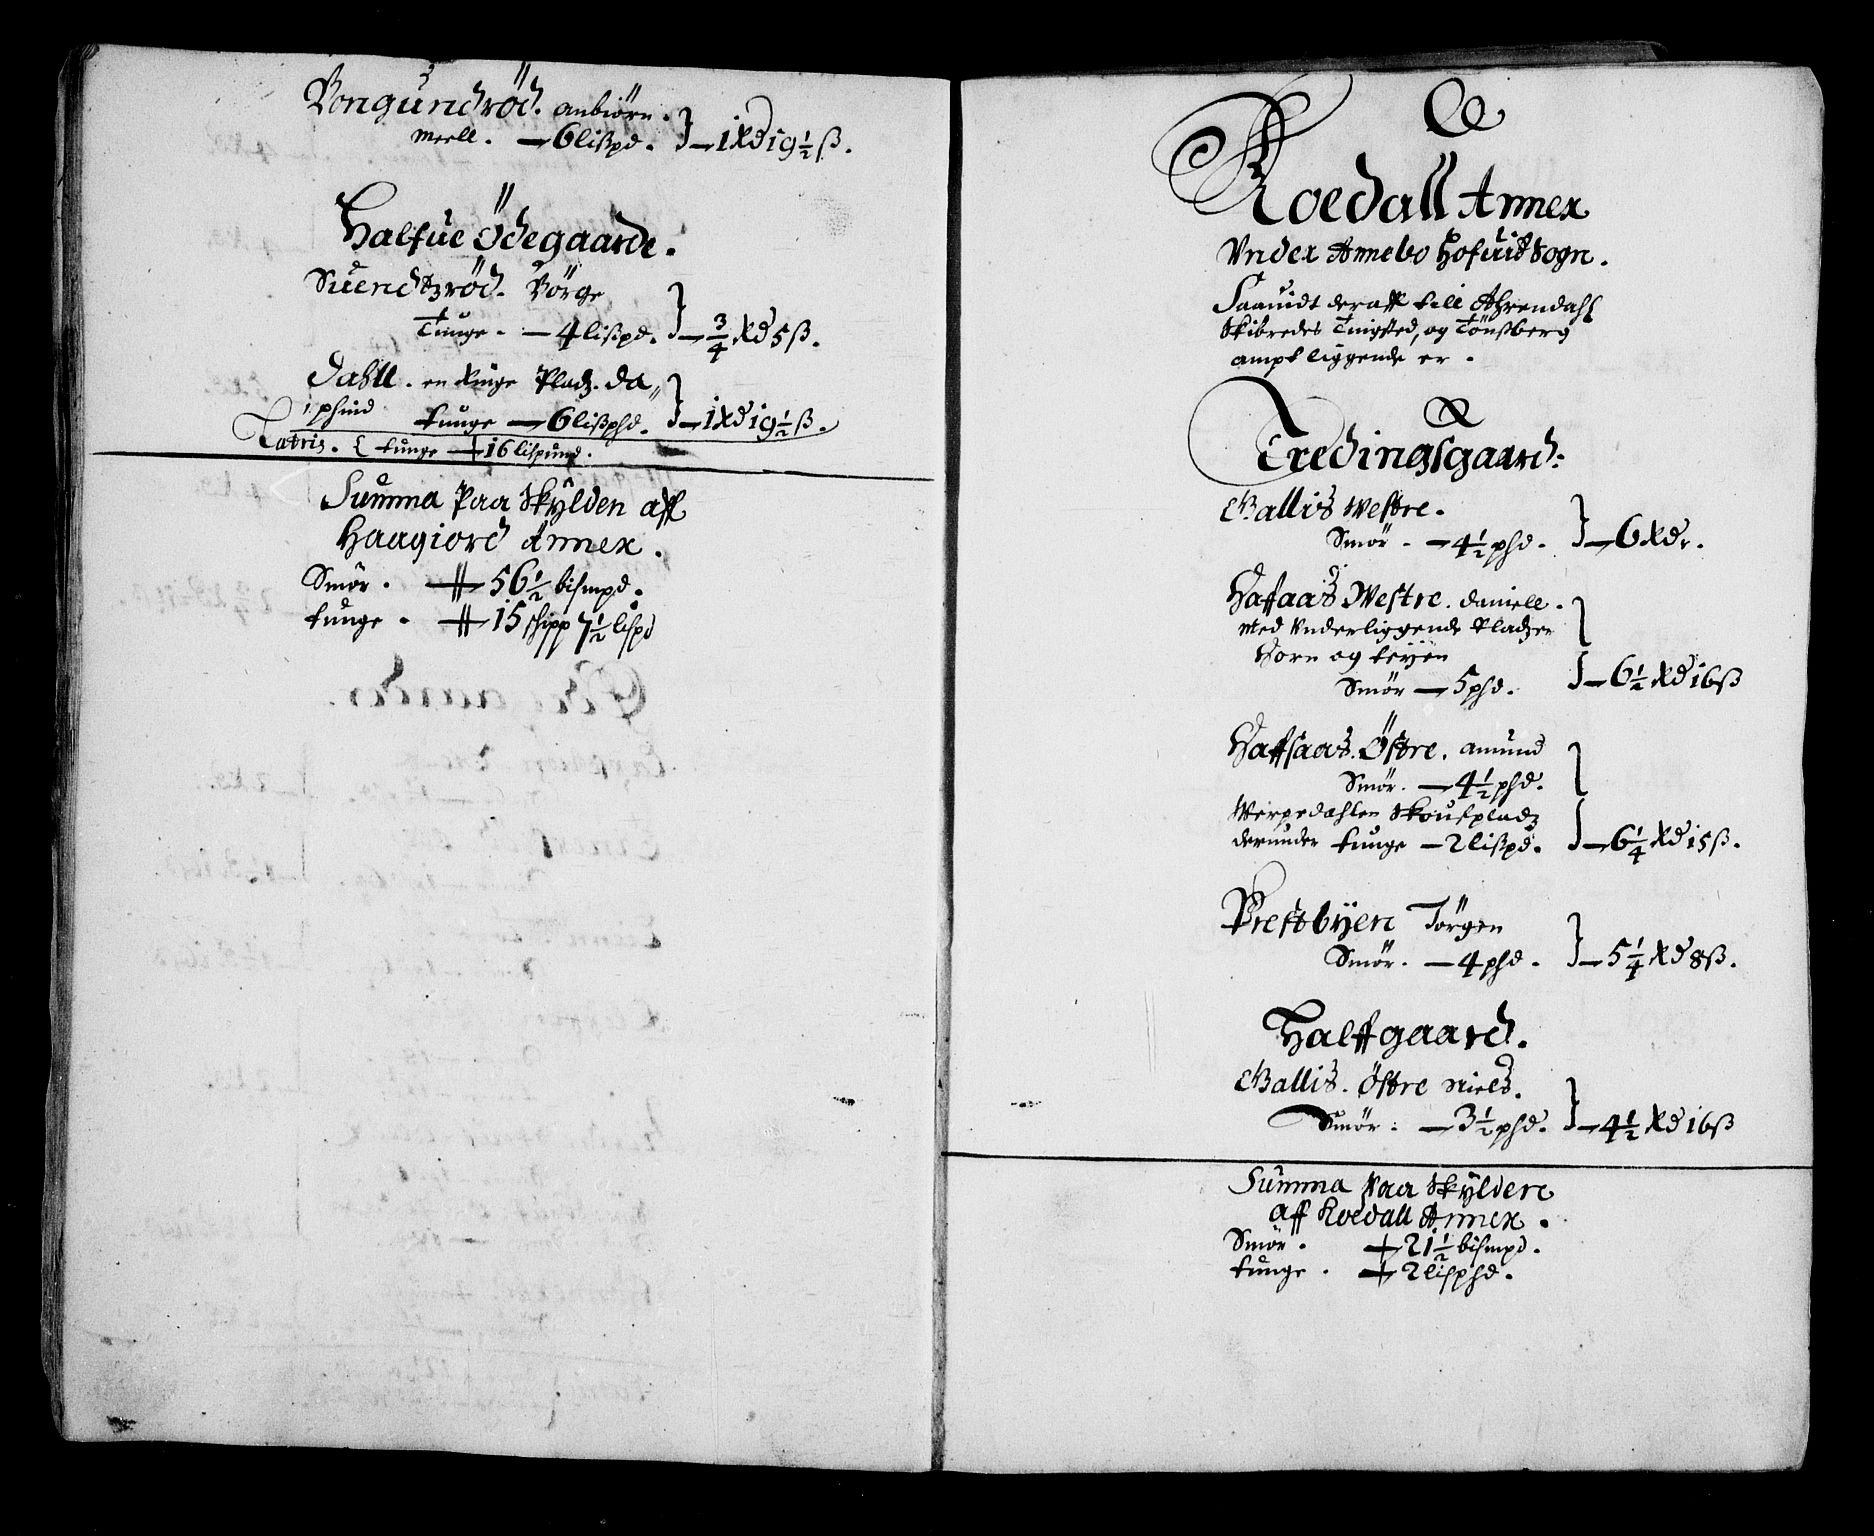 Vongundrød. anbiörn.
meell. — 6 lißpd. } — 1 Rd 19½ ß.
Halfue Ödegaarde.
Suendtzrød. Börge
Tunge. — 4 lißpd. } — ¾ Rd 5 ß.
Dahll. en Ringe Pladz. da„
tunge — 6 lißphd. } — 1 Rd 19½ ß.
Latris. { tunge — 16 lispund.
Summa Paa Skÿlden aff
Haagiord Annex.
Smör. — 56½ bismpd.
tunge. — 15 schipp 7½ lispd
Roedall Annex
Vnder Annebo Hofuit Sogn.
Saauidt deraff till Ahrendahl
Skibredes Tingsted, og Tönsberg
ampt liggende er.
Fredingsgaard:
Ballis Westre.
Smör. — 4½ phd. } — 6 Rdr.
Hafaas Westre. daniell.
Med Vnderliggende Pladzer
Korn og
Smör — 5 phd. } — 6½ Rd 16 ß
Haffsaas. Östre. amund
Smör. — 4½ phd. }
Werpedahlen Skoufpladz
derunder tunge — 2 lißpd. } — 6¼ Rd 15 ß.
Prestbÿen Jörgen
Smör. — 4 phd. } — 5¼ Rd 8 ß.
Halffgaard.
Ballis. Östre Niels.
Smör. — 3½ phd. } — 4½ Rd 16 ß
Summa Paa Skÿlden
aff Roedall Annex.
Smör. — 21½ bismpd.
tunge. — 2 lisphd.